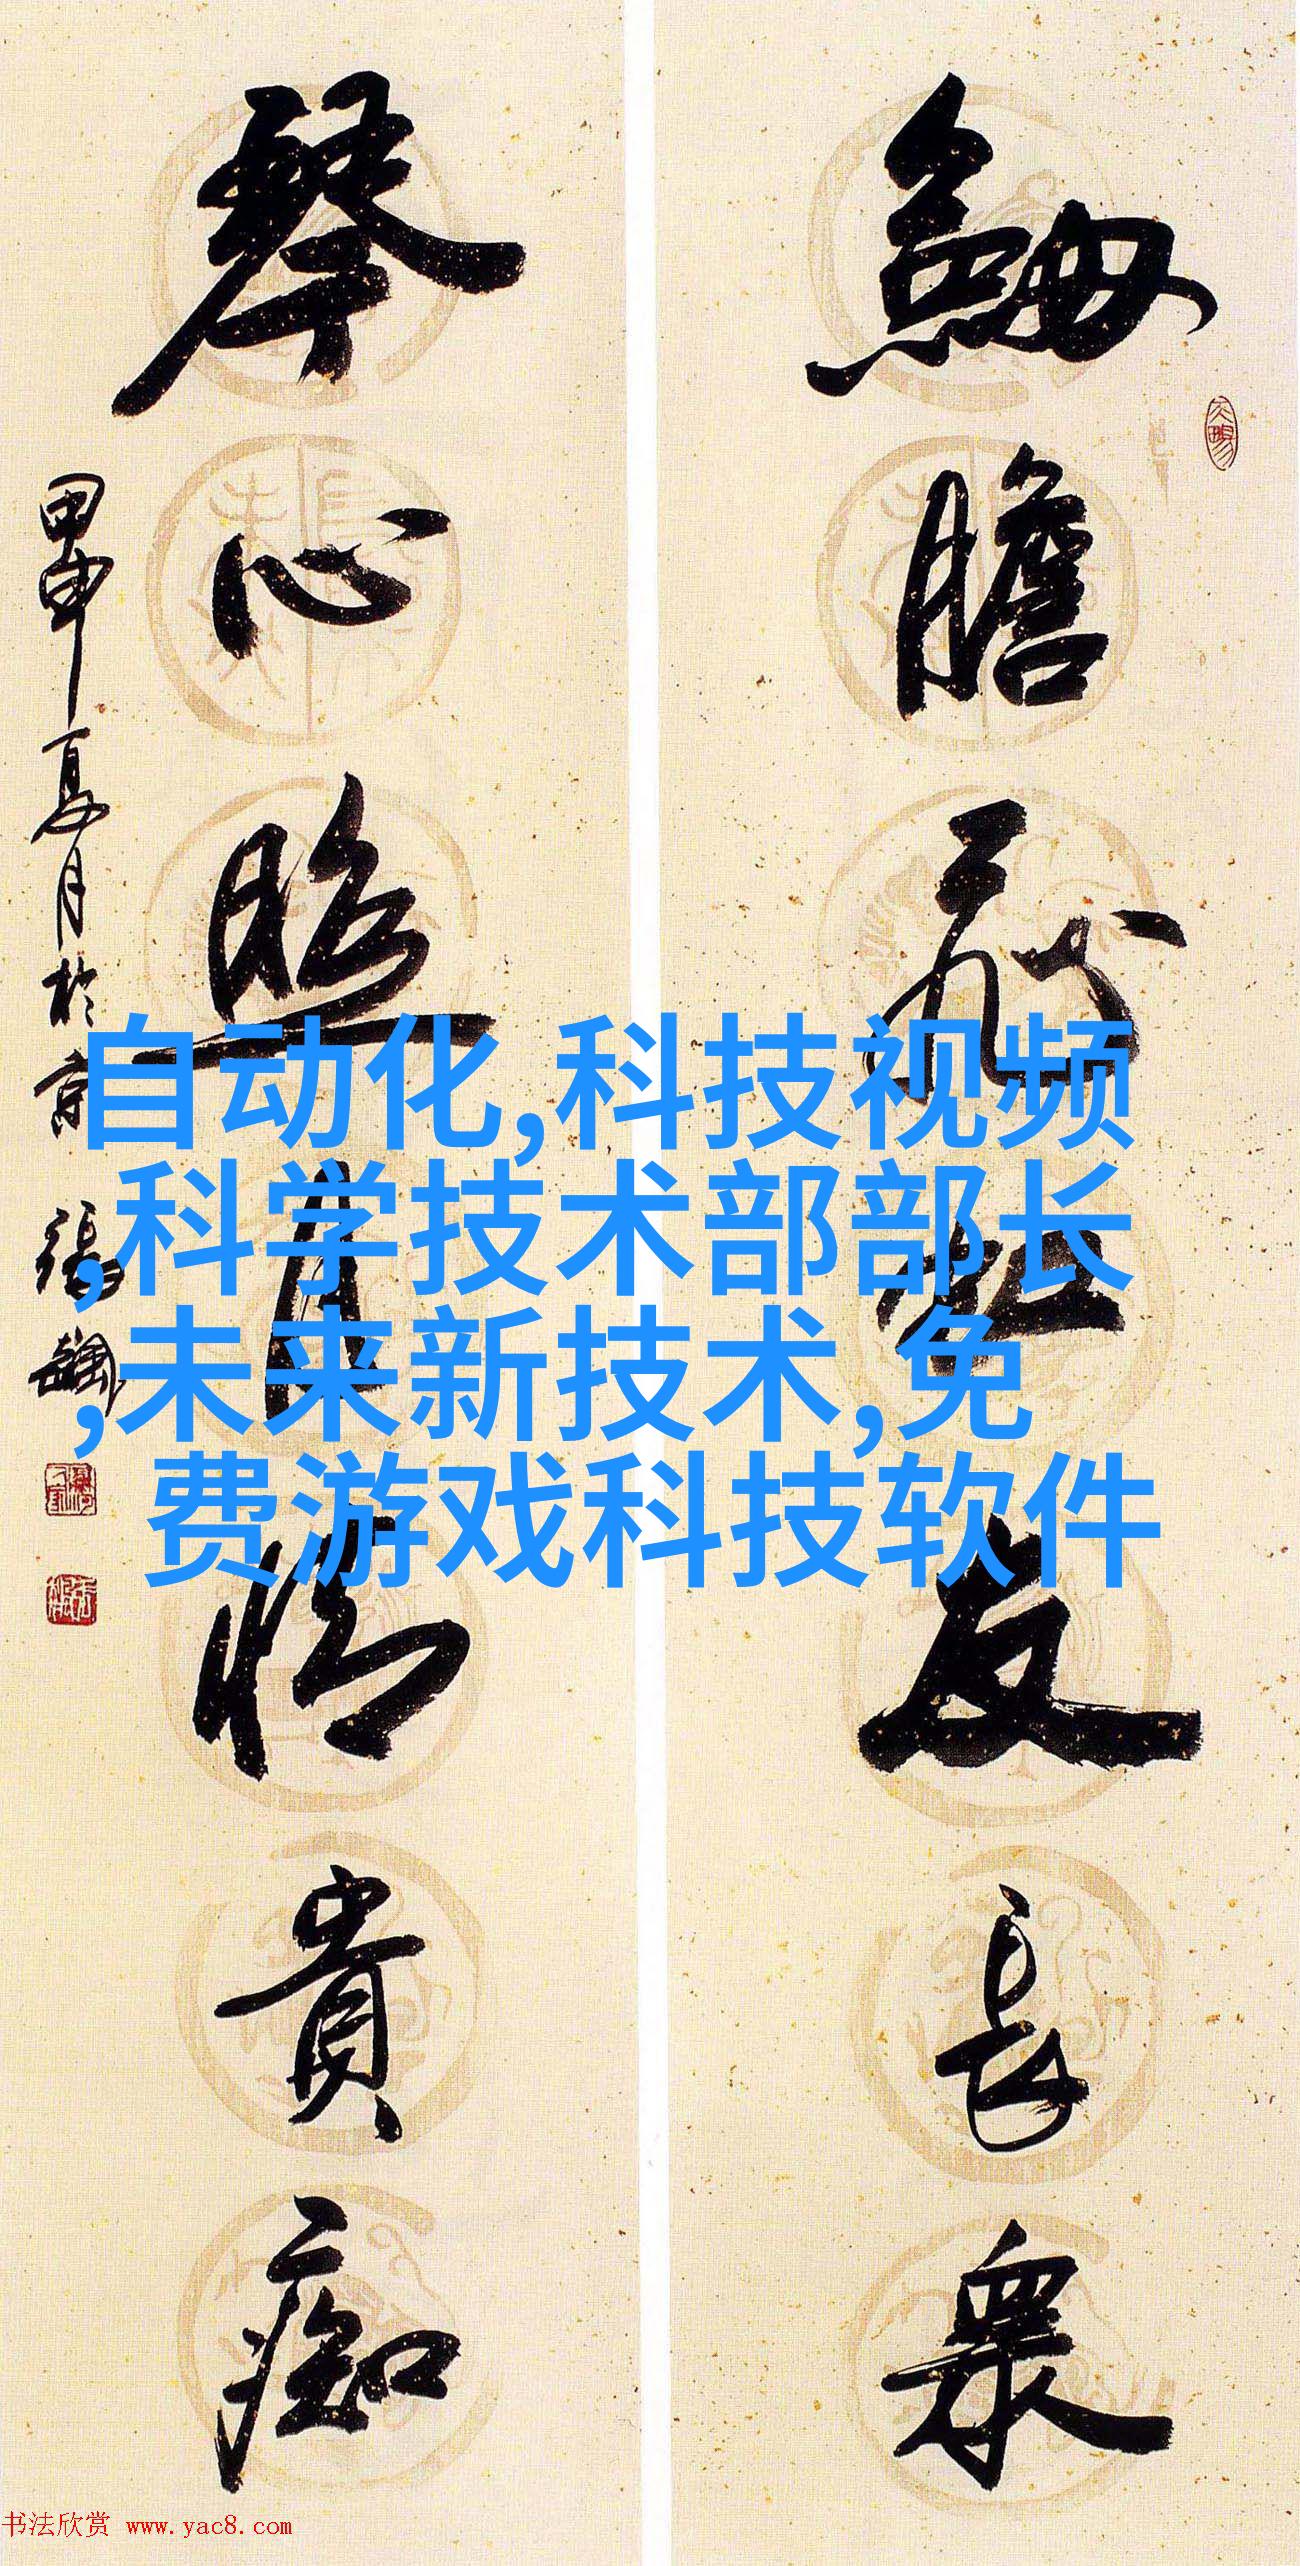 膽
友
長
衆
琴
心
照
月
情
貴
痴
甲申夏月於京 張
自动化,科技视频
,科学技术部部长
,未来新技术,免
费游戏科技软件
书法欣赏 www.yac8.com